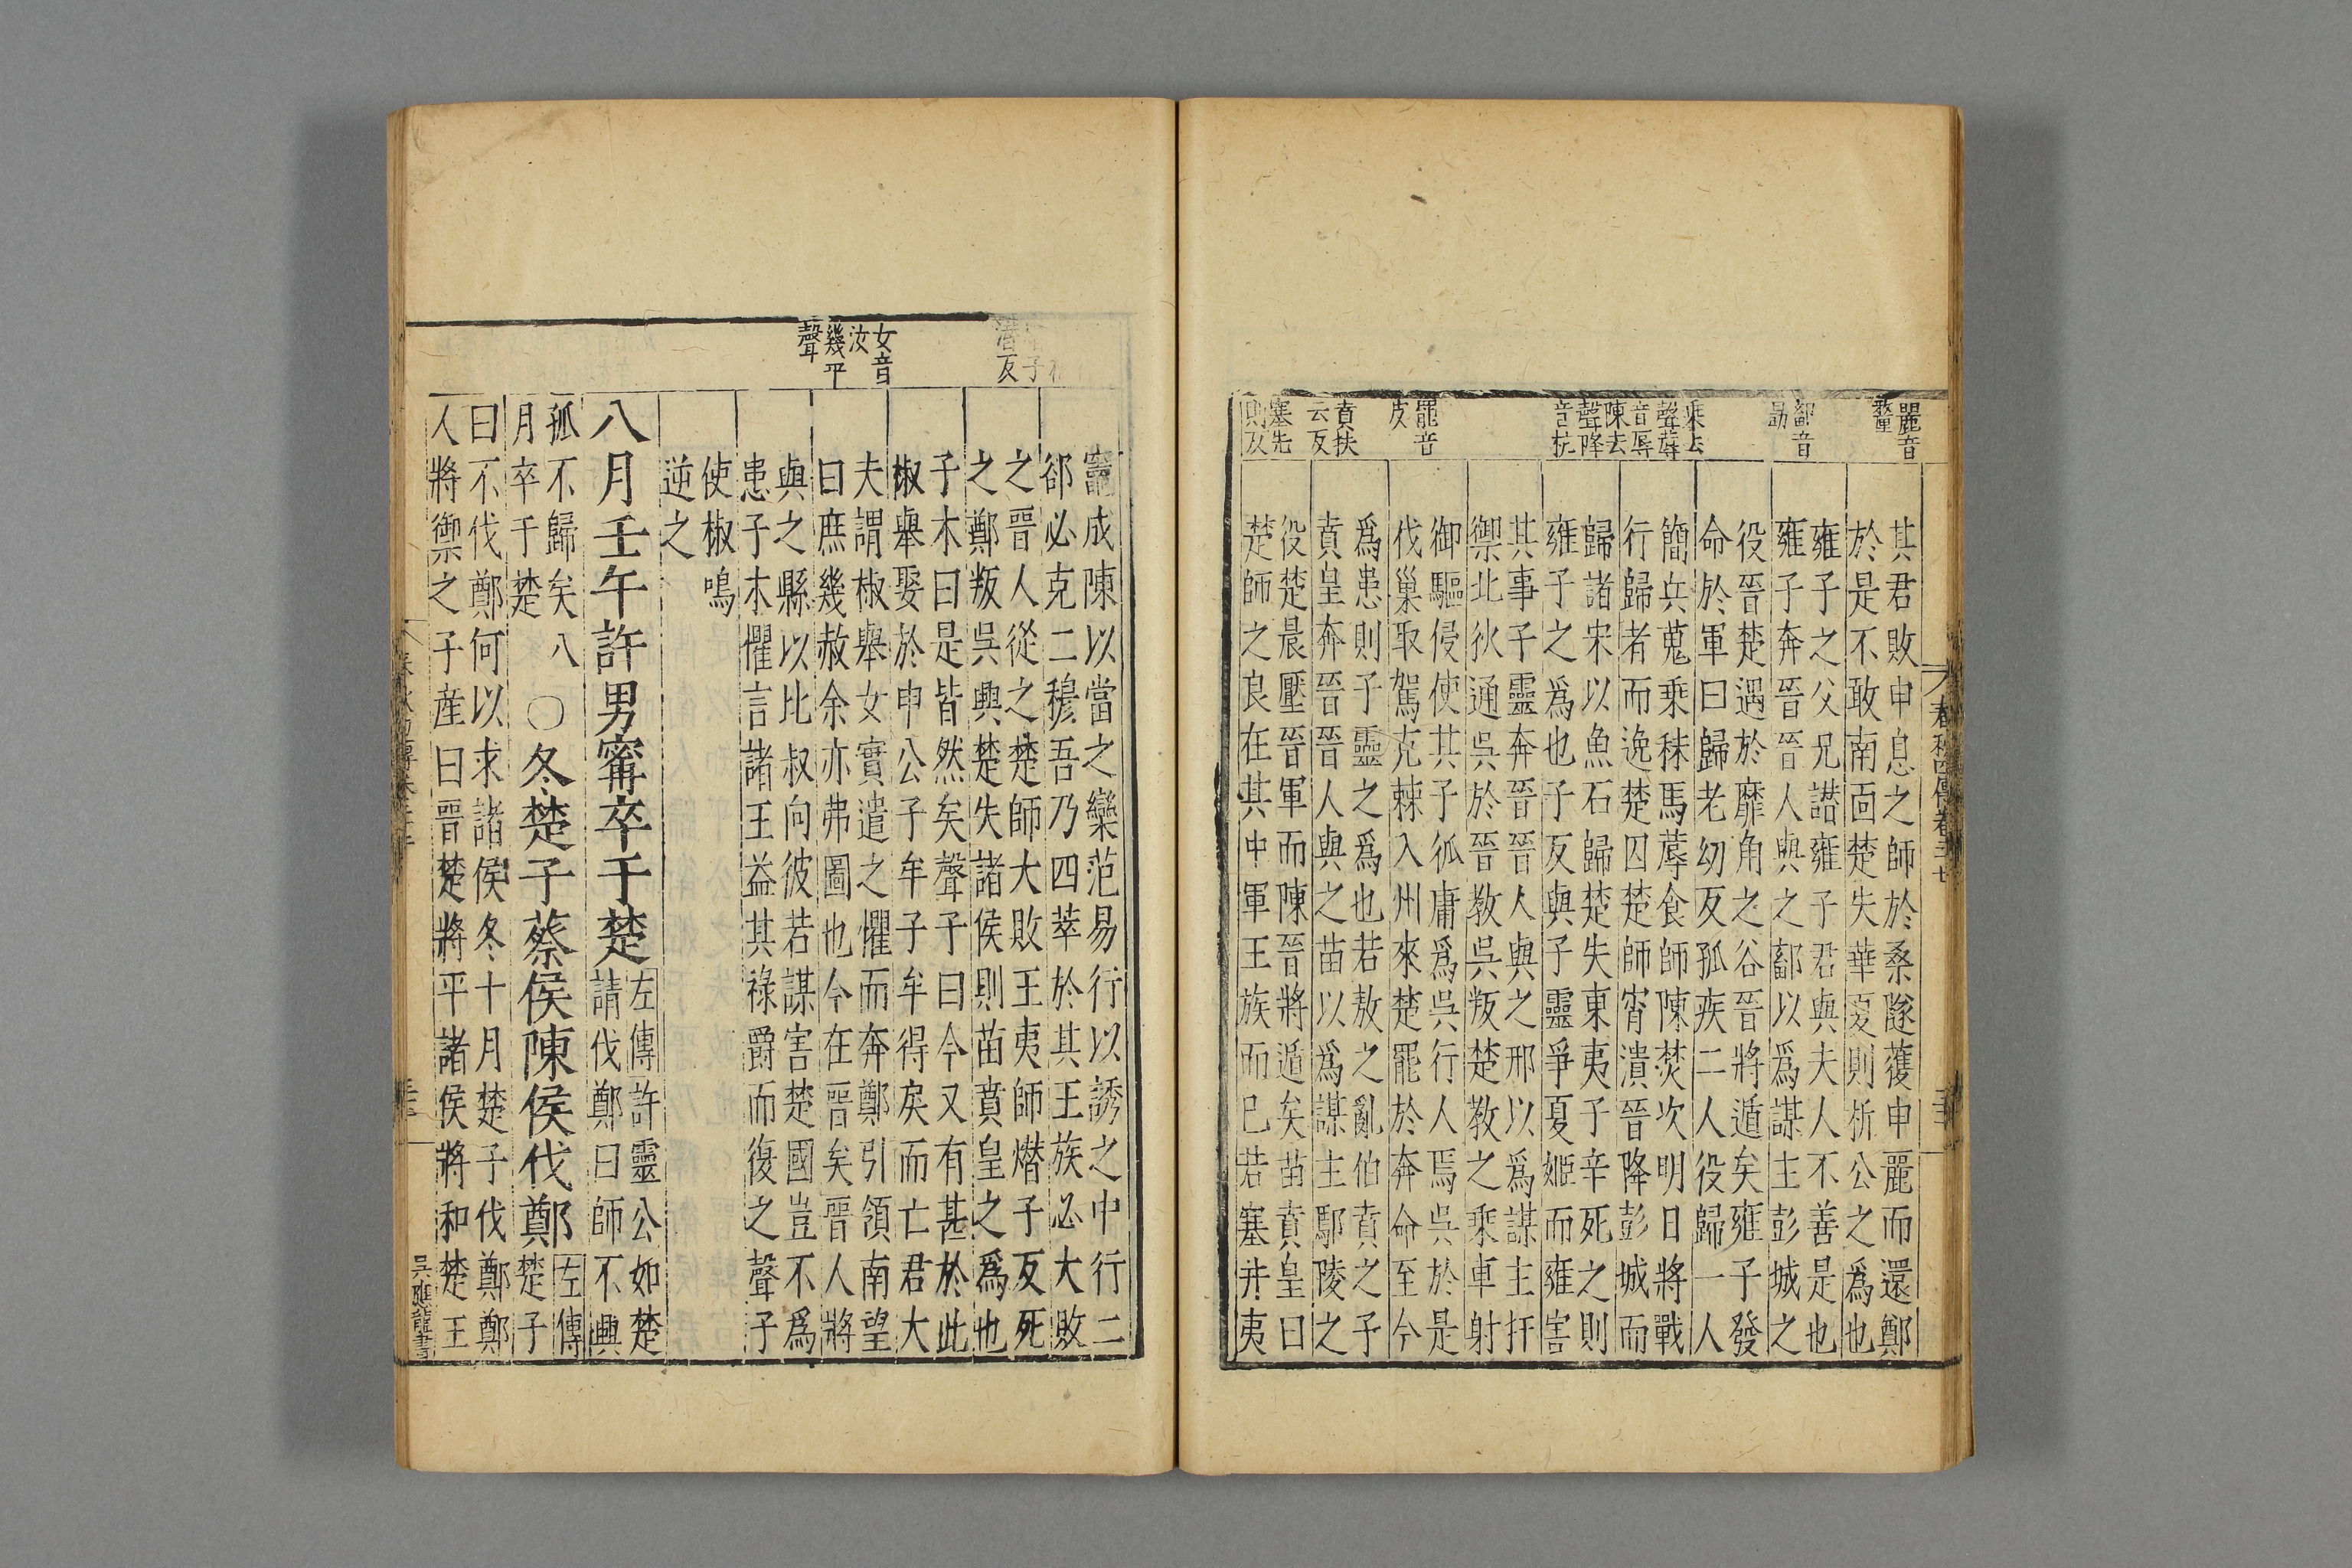 麗音
鄐音
勗
乘去
聲蓐
音辱
陳去
聲降
音杭
罷音
皮
賁扶
云反
塞先
則反
其君敗申息之師於桑隧獲申麗而還鄭
於是不敢南面楚失華夏則析公之爲也
雍子之父兄譖雍子君與夫人不善是也
雍子奔晉晉人與之鄐以爲謀主彭城之
役晉楚遇於靡角之谷晉將遁矣雍子發
命於軍曰歸老幼反孤疾二人役歸一人
簡兵蒐乘秣馬蓐食師陳焚次明日將戰
行歸者而逸楚囚楚師宵潰晉降彭城而
歸諸宋以魚石歸楚失東夷子辛死之則
雍子之爲也子反與子靈爭夏姬而雍害
其事子靈奔晉晉人與之邢以爲謀主扞
禦北狄通吳於晉敎吳叛楚敎之乘車射
御驅侵使其子狐庸爲吳行人焉吳於是
伐巢取駕克棘入州來楚罷於奔命至今
爲患則子靈之爲也若敖之亂伯賁之子
賁皇奔晉晉人與之苗以爲謀主鄢陵之
役楚晨壓晉軍而陳晉將遁矣苗賁皇曰
楚師之良在其中軍王族而已若塞井夷
女音
汝
幾平
聲
竈成陳以當之欒范易行以誘之中行二
郤必克二穆吾乃四萃於其王族必大敗
之晉人從之楚師大敗王夷師熸子反死
之鄭叛吳興楚失諸侯則苗賁皇之爲也
子木曰是皆然矣聲子曰今又有甚於此
椒舉娶於申公子牟子牟得戾而亡君大
夫謂椒舉女實遣之懼而奔鄭引領南望
曰庶幾赦余亦弗圖也今在晉矣晉人將
與之縣以比叔向彼若謀害楚國豈不爲
患子木懼言諸王益其祿爵而復之聲子
使椒鳴
逆之
八月壬午許男甯卒于楚
左傳許靈公如楚
請伐鄭曰師不興
孤不歸矣八
月卒于楚
〇冬楚子蔡侯陳侯伐鄭
左傳
楚子
曰不伐鄭何以求諸侯冬十月楚子伐鄭鄭
人將禦之子産曰晉楚將平諸侯將和楚王
吳應龍書